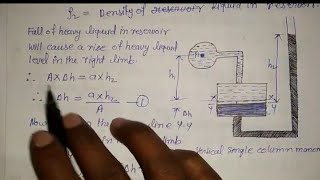 ρ2 = Density of Reservoir Liquid in reservoir
Fall of heavy liquid in reservoir
will cause a rise of heavy liquid
level in the right limb.
∴ A×Δh = a×h2
∴ Δh = a×h2 / A ①
h1
h2
Δh
Y Y
Now
line Y-Y
limb
Vertical Single column manom